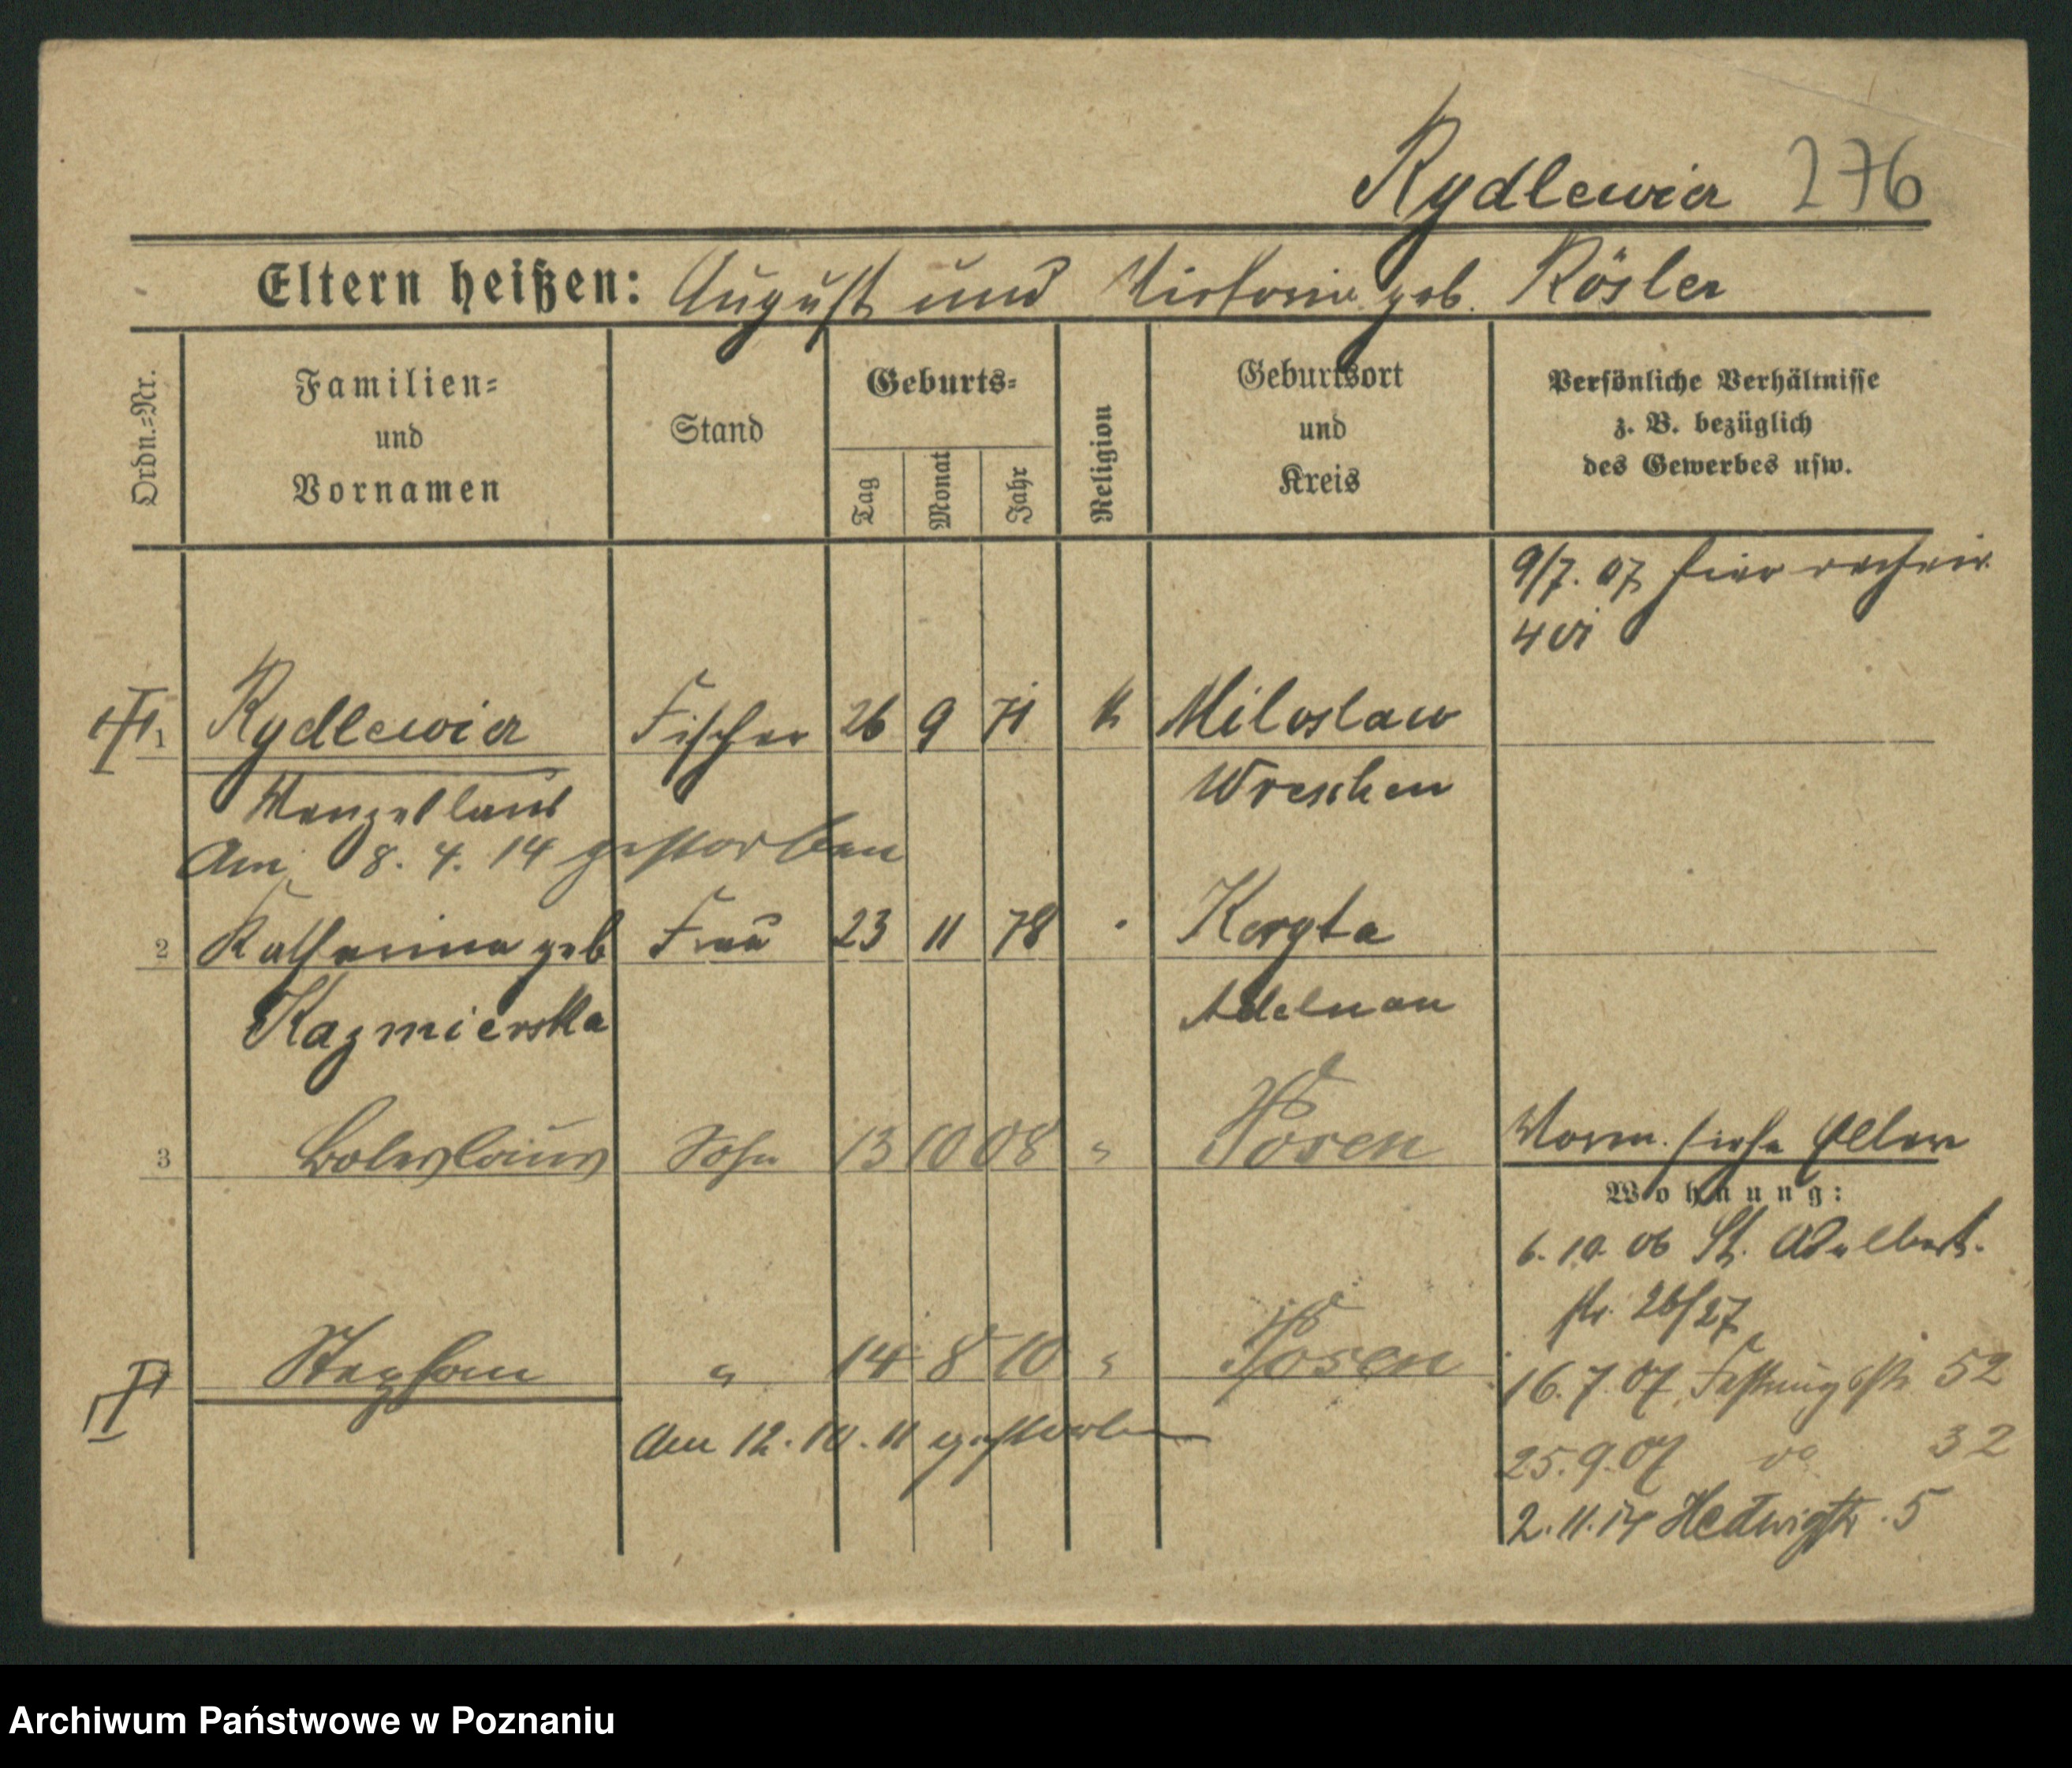 Rydlewicz 276
Eltern heißen: August und Victoria geb. Rösler
Ordn.=Nr.
Familien=
und
Vornamen
Stand
Geburts=
Tag
Monat
Jahr
Religion
Geburtsort
und
Kreis
Persönliche Verhältnisse
z. B. bezüglich
des Gewerbes usw.
9/7. 07 hier
1 Rydlewicz Fischer 26 9 71 k Miloslaw
Wenzeslaus Wreschen
Am 8. 4. 14 gestorben
2 Katharina geb Frau 23 11 78 " Koryta
Kazmierska Adelnau
3 Boleslaus Sohn 13 10 08 " Posen
Vorm. siehe Eltern
Wohnung:
6. 10. 06 St. Adalbert-
str. 26/27
Stephan " 14 8 10 " Posen
Am 12. 10. 11 gestorben
16. 7. 07 Festungsstr 52
25. 9. 07 do 32
2. 11. 14 Hedwigstr. 5